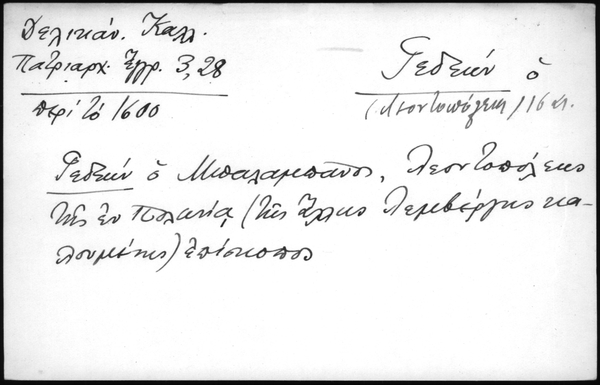 Δελικάν. Καλλ.
Πατριαρχ. Ἔγγρ. 3, 28
περί τό 1600
Γεδεών ὁ
(Λεοντοπόλεως / 16 αι.
Γεδεών ὁ Μπαλαμπάνος, Λεοντοπόλεως
τῆς ἐν Πολωνίᾳ (τῆς ἄλλως Λεμβέργης κα-
λουμένης) ἐπίσκοπος